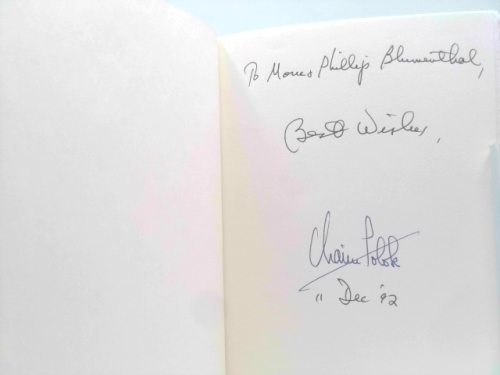 To Morris Phillips Blumenthal,
Best Wishes,
Chaim Potok
11 Dec '92